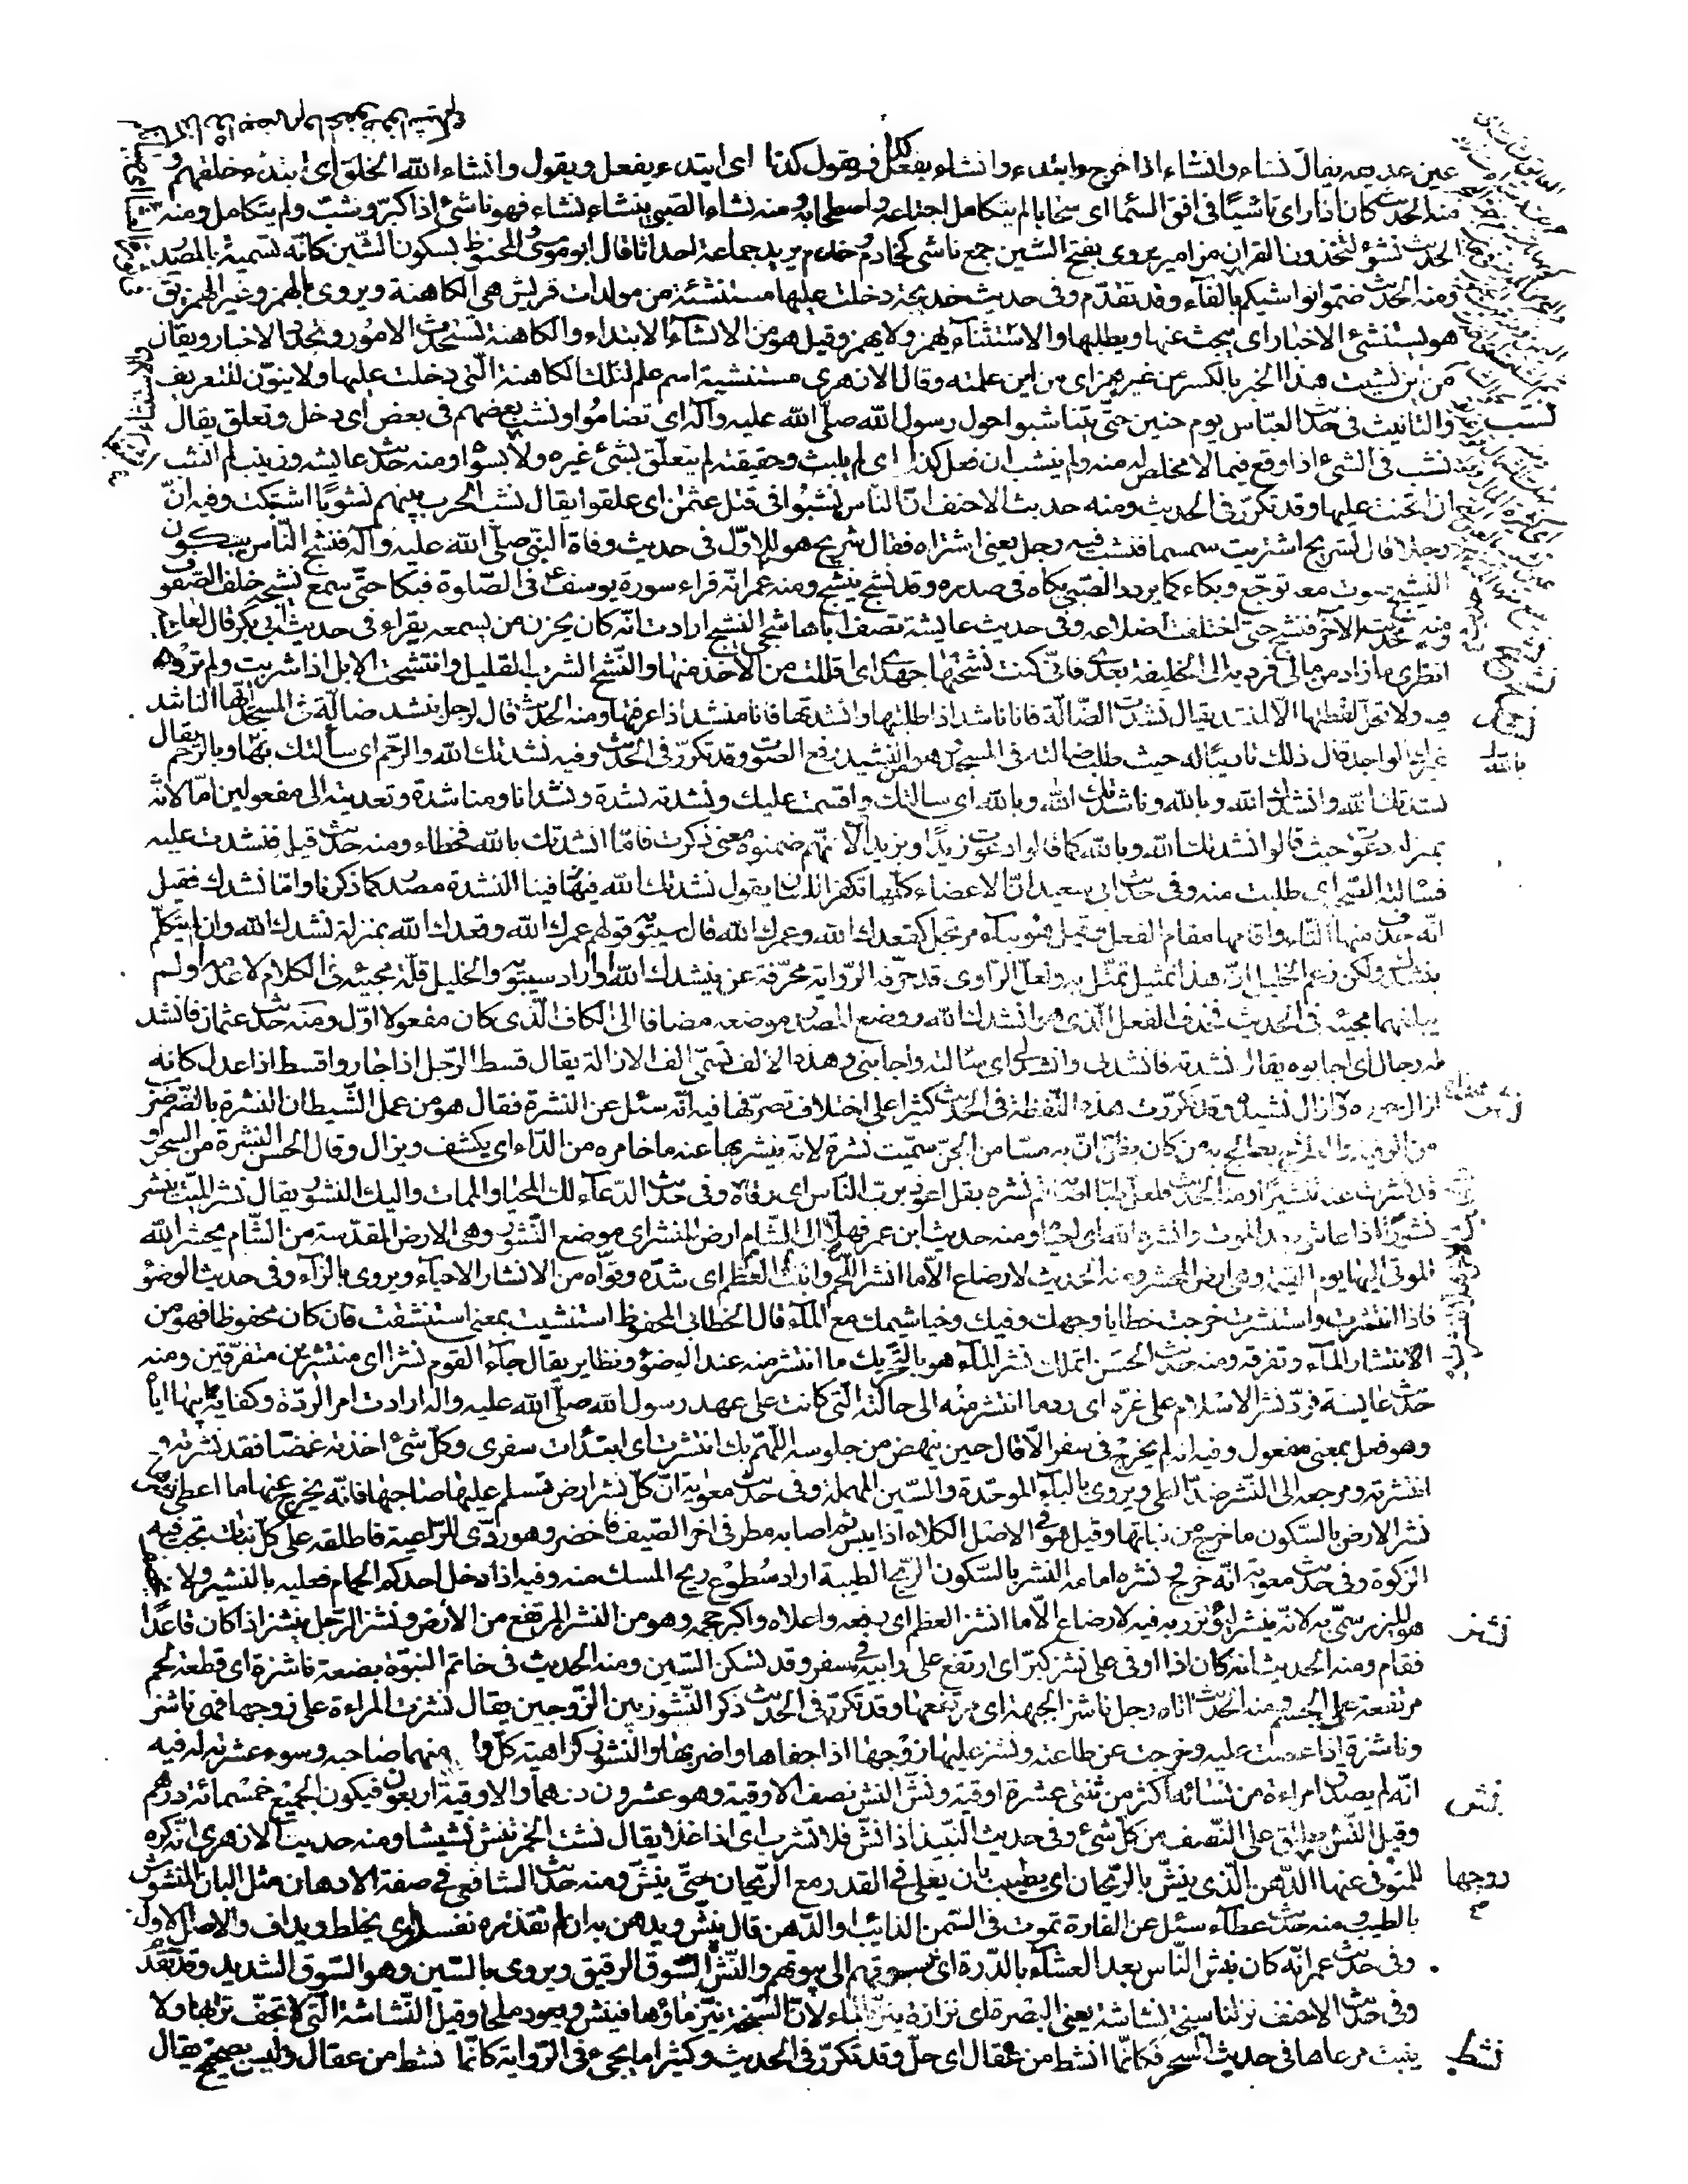 عين غديقه يقال نشاء وانشاء اذا خرج وابتدء وانشاء يفعل كذا ويقول كذا اى ابتدء يفعل ويقول وانشاء الله الخلق اى ابتدء خلقهم و
منه الحديث كان اذا راى ناشيًا فى افق السّماء اى سحابا لم يتكامل اجتماعه واصطحابه ومنه نشاء الصّبى ينشاء نشاء فهو ناشئ اذا كبر وشبّ ولم يتكامل ومنه
الحديث نشؤ يتّخذون القران مزامير يروى بفتح الشين جمع ناشى كخادم وخدم يريد جماعة احداثا قال ابو موسى المحفوظ بسكون الشّين كانّه تسمية بالمصدر
ومنه الحديث ضمّوا نواشيكم بالفآء وقد تقدّم وفى حديث خديجة دخلت عليها مستنشئة من مولدات قريش هى الكاهنة ويروى بالهمز وغير الهمز يق
هو يستنشئ الاخبار اى يبحث عنها ويطلبها والاستنشآء يهمز ولا يهمز وقيل هو من الانشآء الابتداء والكاهنة تستحدث الامور وتجدّد الاخبار ويقال
من اين نشيت هذا الخبر بالكسر من غير همز اى من اين علمته وقال الازهرى مستنشية اسم علم لتلك الكاهنة الّتى دخلت عليها ولا ينوّن للتعريف
نشب والتانيث فى حديث العبّاس يوم حنين حتى تناشبوا حول رسول الله صلّى الله عليه وآله اى تضامّوا ونشب بعضهم فى بعض اى دخل وتعلق يقال
نشب فى الشئ اذا وقع فيما لا مخلص له منه ولم ينشب ان فعل كذا اى لم يلبث وحقيقته لم يتعلّق بشئ غيره ولا بسواه ومنه حديث عايشة وزينب لم انشب
ان اثخنت عليها وقد تكرّر فى الحديث ومنه حديث الاحنف انّ النّاس نشبوا فى قتل عثمٰن اى علقوا يقال نشب الحرب بينهم نشوبًا اشتبكت وفيه انّ
رجلا قال لشريح اشتريت سمسما فنشب فيه رجل يعنى اشتراه فقال شريح هو للاوّل فى حديث وفاة النبّى صلّى الله عليه وآله فنشج النّاس يبكون
النشيج صوت معه توجّع وبكاء كما يردد الصّبى بكاه فى صدره وقد نشج ينشج ومنه عمر انّه قراء سورة يوسف فى الصّلوة فبكا حتّى سمع نشيجه خلف الصّفوف
ومنه حديث الآخر فنشج حتى اختلفت اضلاعه وفى حديث عايشة تصف اباها شجى النشيج ارادت انّه كان يحزن من يسمعه يقراء فى حديث ابى بكر قال لعايشة
انظرى ما زاد من مالى فردّيه الى الخليفة بعدى فانّى كنت نشحتها جهدى اى اقللت من الاخذ منها والنّشح الشرب القليل وانتشحت الابل اذا شربت ولم ترو
فيه ولا تحلّ لقطتها الّا لمنشد يقال نشدت الضّالّة فانا ناشد اذا طلبتها وانشدتها فانا منشد اذا عرفتها ومنه الحديث قال لرجل ينشد ضالّة فى المسجد ايّها الناشد
غيرك الواجد قال ذلك تاديبًا له حيث طلب ضالته فى المسجد وهو من النشيد رفع الصوت وقد تكرّر فى الحديث وفيه نشدتك الله والرّحم اى سألتك بهما وبالرّحم يقال
نشدتك الله وانشدك الله وبالله وناشدتك الله وبالله اى سالتك واقسمت عليك ونشدته نشدة ونشدانا ومناشدة وتعديته الى مفعولين امّا لانّه
بمنزلة دعوت حيث قالوا نشدتك الله وبالله كما قالوا دعوت زيدًا وبزيد او لانّهم ضمنوه معنى ذكرت فامّا انشدتك بالله فخطاء ومنه حديث قيلة فنشدت عليه
فسالته الصّحبة اى طلبت منه وفى حديث ابى سعيد انّ الاعضاء كلّها تكفر اللسان يقول نشدك الله فينا النشدة مصدر كما ذكرنا وامّا نشدك فقيل
انّه حذف منها التّاء واقامها مقام الفعل وقيل هو بناء مرتجل كقعدك الله وعمرك الله قال سيبويه قولهم عمرك الله وقعدك الله بمنزلة نشدك الله وان لم يتكلّم
بنشدك ولكن زعم الخليل انّ هذا تمثيل تمثّل به ولعلّ الرّاوى قد حرّف الرّواية محرّفة عن ننشدك الله او اراد سيبويه والخليل قلّة مجيئه فى الكلام لا عدمه او لم
يبلغهما مجيئه فى الحديث فحذف الفعل الّذى هو انشدك الله ووضع المصدر موضعه مضافا الى الكاف الّذى كان مفعولا اوّل ومنه حديث عثمان فانشد
له رجال اى اجابوه يقال نشدته فانشدنى وانشد لى اى سالته واجابنى وهذه الالف تسمّى الف الازالة يقال قسط الرّجل اذا جار واقسط اذا عدل كانه
ازال جوره وازال نشيده وقد تكرّرت هذه اللّفظة فى الحديث كثيرا على اختلاف تصرّفها فيه انّه سئل عن النشرة فقال هو من عمل الشّيطان النشرة بالضّم ضرب
من الرقية والعلاج يعالج به من كان يظنّ انّ به مسّا من الجنّ سمّيت نشرة لانّه ينشر بها عنه ما خامره من الدّاء اى يكشف ويزال وقال الحسن النشرة من السحر و
قد نشرت عنه تنشيرًا ومنه الحديث فلعلّ طبًا اصابه ثم نشره بقل اعوذ بربّ النّاس اى رقاه وفى حديث الدّعآء لك المحيا والممات واليك النشور يقال نشر الميّت ينشر
نشورًا اذا عاش بعد الموت وانشره الله اى احياه ومنه حديث ابن عمر فهلّا الى الشّام ارض المنشر اى موضع النّشور وهى الارض المقدّسة من الشّام يحشر الله
الموتى اليها يوم القيمة وهى ارض المحشر ومنه الحديث لا رضاع الّا ما انشر اللّحم وانبت العظم اى شدّه وقوّاه من الانشار الاحيآء ويروى بالزّآء وفى حديث الوضؤ
فاذا انتشرت واستنشرت خرجت خطايا وجهك وفيك وخياشيمك مع المآء قال الخطابى المحفوظ استنشيت بمعنى استنشقت فان كان محفوظا فهو من
الانتشار المآء وتفرقه ومنه حديث الحسن اتملك نشر المآء هو بالتّحريك ما انتشر منه عند الوضوء وتطاير يقال جآء القوم نشرا اى منتشرين متفرّقين ومنه
حديث عايشة فردّ نشر الاسلام على غرّه اى ردّ ما انتشر منه الى حالته الّتى كانت على عهد رسول الله صلّى الله عليه وآله ارادت امر الردّة وكفاية ابيها ايّاه
وهو فعل بمعنى مفعول وفيه انه لم يخرج فى سفر الّا قال حين ينهض من جلوسه اللّهمّ بك انتشرت اى ابتدأت سفرى وكلّ شئ اخذته غضّا فقد نشرته و
انتشرته ومرجعه الى النّشر ضدّ الطىّ ويروى بالبآء الموحّدة والسّين المهملة وفى حديث معوية انّ كلّ نشر ارض يسلم عليها صاحبها فانّه يخرج عنها ما اعطى
نشر الارض بالسّكون ما خرج من نباتها وقيل هو فى الاصل الكلاء اذا يبس ثم اصابه مطر فى آخر الصّيف فاخضر وهو ردّى للرّاعية فاطلقه على كلّ نبات تجب فيه
الزكوة وفى حديث معوية انّه خرج ونشره امامه النشر بالسّكون الرّيح الطيبة اراد سُطوع ريح المسك منه وفيه اذا دخل احدكم الحمام فعليه بالنشير ولا
نشز هو الميزر سمّى به لانّه ينشر ليؤتزر به فيه لا رضاع الّا ما انشز العظم اى رفعه واعلاه واكبر حجمه وهو من النشز المرتفع من الأرض ونشز الرّجل ينشز اذا كان قاعدًا
فقام ومنه الحديث انه كان اذا اوفى على نشز كبّر اى ارتفع على رابية فى سفر وقد تسكن الشين ومنه الحديث فى خاتم النبوّة بضعة ناشزة اى قطعة لحم
مرتفعة على الجسم ومنه الحديث اتاه رجل ناشز الجبهة اى مرتفعها وقد تكرّر فى الحديث ذكر النّشوز بين الزّوجين يقال نشزت المراءة على زوجها فهى ناشز
وناشزة اذا عصت عليه وخرجت عن طاعته ونشز عليها زوجها اذا جفاها واضرّ بها والنشوز كراهية كلّ واحد منهما صاحبه وسوء عشرته له فيه
نش انّه لم يصدق امراءة من نسائه اكثر من ثنتى عشرة اوقية ونشّ النش نصف الاوقية وهو عشرون درهما والاوقية اربعون فيكون الجميع خمسمائة درهم
وقيل النّش يطلق على النّصف من كلّ شئ وفى حديث النّبيذ اذا نشّ فلا تشرب اى اذا غلا يقال نشّت الخمر تنش نشيشا ومنه حديث الازهرى انّه كره
زوجها للمتوفى عنها الدّهن الّذى ينشّ بالرّيحان اى يطيب بان يغلى فى القدر مع الرّيحان حتّى ينشّ ومنه حديث الشافعى فى صفة الادهان مثل البان المنشوش
بالطيب ومنه حديث عطآء سئل عن الفارة تموت فى السّمن الذائب او الدّهن قال ينشّ ويدهن به ان لم تقذره نفسك اى يخلط ويداف والاصل الاول
وفى حديث عمر انّه كان ينش النّاس بعد العشآء بالدّرة اى يسوقهم الى بيوتهم والنّشّ السّوق الرفيق ويروى بالسّين وهو السّوق الشديد وقد تقدّم
وفى حديث الاحنف نزلنا سبخة نشّاشة يعنى البصرة اى نزازة ينزّ بالماء لانّ السّبخة ينزّ ماؤها فينش ويعود ملحا وقيل النّشاشة الّتى لا تجفّ تربتها ولا
نشط ينبت مرعاها فى حديث السحر فكانّما انشط من عقال اى حلّ وقد تكرّر فى الحديث وكثيرا ما يجئ فى الرّواية كانّما نشط من عقال وليس بصحيح يقال